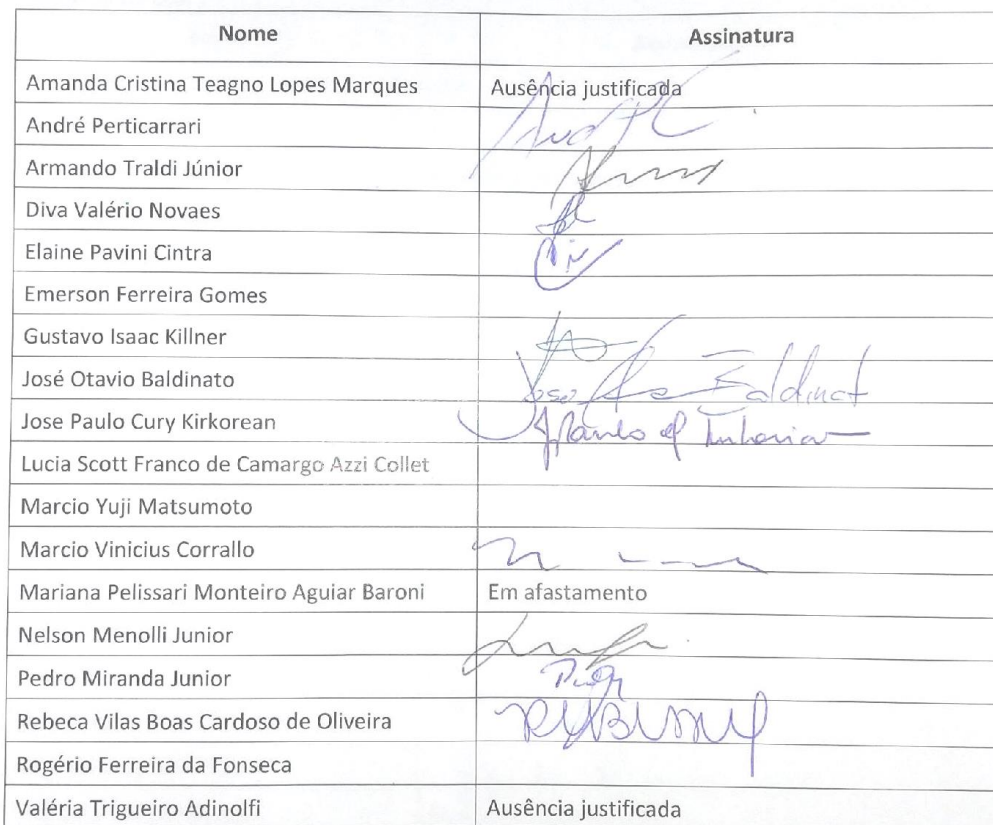 Nome Assinatura
Amanda Cristina Teagno Lopes Marques Ausência justificada
André Perticarrari
Armando Traldi Júnior
Diva Valério Novaes
Elaine Pavini Cintra
Emerson Ferreira Gomes
Gustavo Isaac Killner
José Otavio Baldinato
Jose Paulo Cury Kirkorean
Lucia Scott Franco de Camargo Azzi Collet
Marcio Yuji Matsumoto
Marcio Vinicius Corrallo
Mariana Pelissari Monteiro Aguiar Baroni Em afastamento
Nelson Menolli Junior
Pedro Miranda Junior
Rebeca Vilas Boas Cardoso de Oliveira
Rogério Ferreira da Fonseca
Valéria Trigueiro Adinolfi Ausência justificada